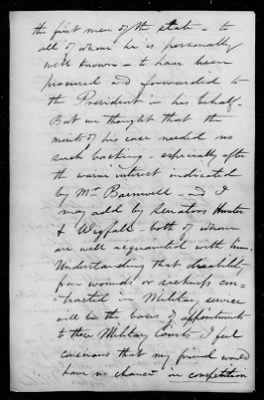 the first men of the state - to
all of whom he is personally
well known - to have been
procured and forwarded to
the President in his behalf -
But we thought that the
merits of his case needed no
such backing - especially after
the warm interest indicated
by Mr Barnwell - and I
may add by Senators Hunter
& Wigfall - both of whom
are well acquainted with him.
Understanding that disability
from wounds or sickness con-
tracted in Military service
will be the basis of appointments
to these Military Courts I feel
conscious that my friend would
have no chance in competition